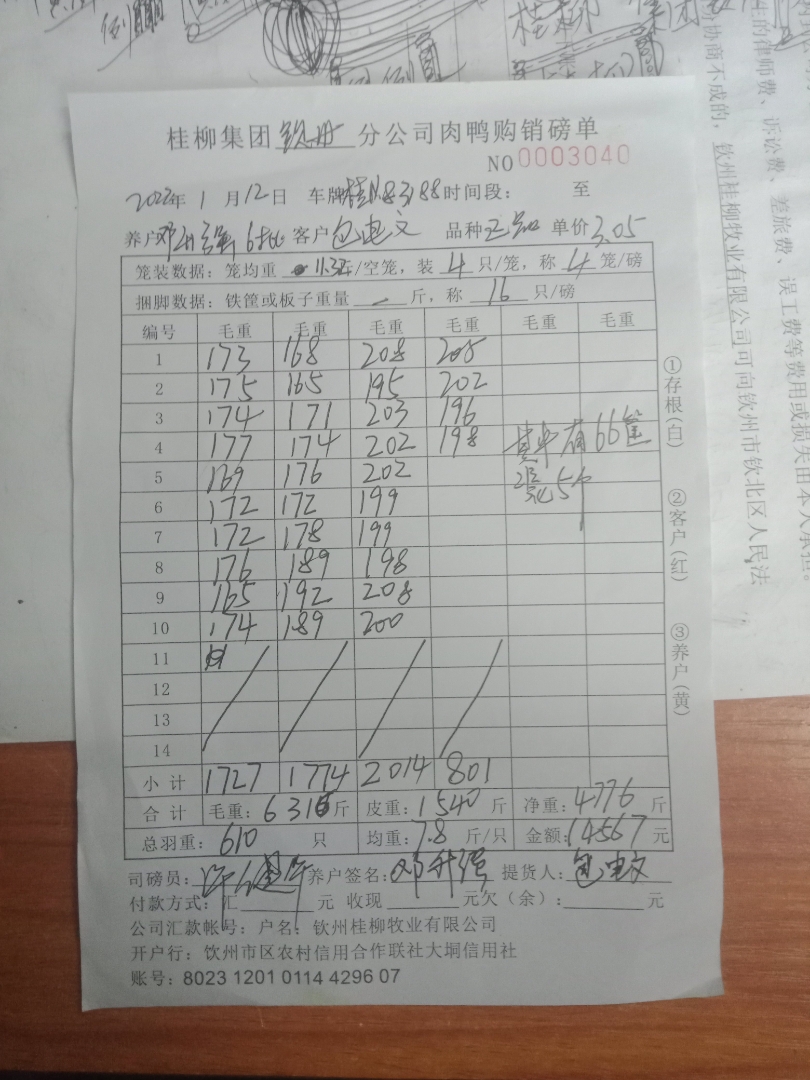 桂柳集团 分公司肉鸭购销磅单
NO 0003040
2022年 1 月 12日 车牌桂 83188 时间段： 至
养户 6批 客户 包电文 品种 单价 3.05
笼装数据：笼均重 11.3斤/空笼，装 4 只/笼，称 4 笼/磅
捆脚数据：铁筐或板子重量 — 斤，称 16 只/磅
编号 毛重 毛重 毛重 毛重 毛重 毛重
1 173 168 208 205
2 175 165 195 202
3 174 171 203 196
4 177 174 202 198 其中有66筐
5 169 176 202 混5个
6 172 172 199
7 172 178 199
8 176 189 198
9 165 192 208
10 174 189 200
11
12
13
14
小计 1727 1774 2014 801
合计 毛重：6316斤 皮重：1540 斤 净重：4776 斤
总羽重：610 只 均重：7.8 斤/只 金额：14567 元
司磅员： 养户签名：邓升强 提货人：包电文
付款方式：汇 元 收现 元欠（余）： 元
公司汇款帐号：户名：钦州桂柳牧业有限公司
开户行：钦州市区农村信用合作联社大垌信用社
账号：8023 1201 0114 4296 07
①存根(白)
②客户(红)
③养户(黄)
生的律师费、诉讼费、差旅费、误工费等费用或损失由本人承担。
协商不成的，钦州桂柳牧业有限公司可向钦州市钦北区人民法